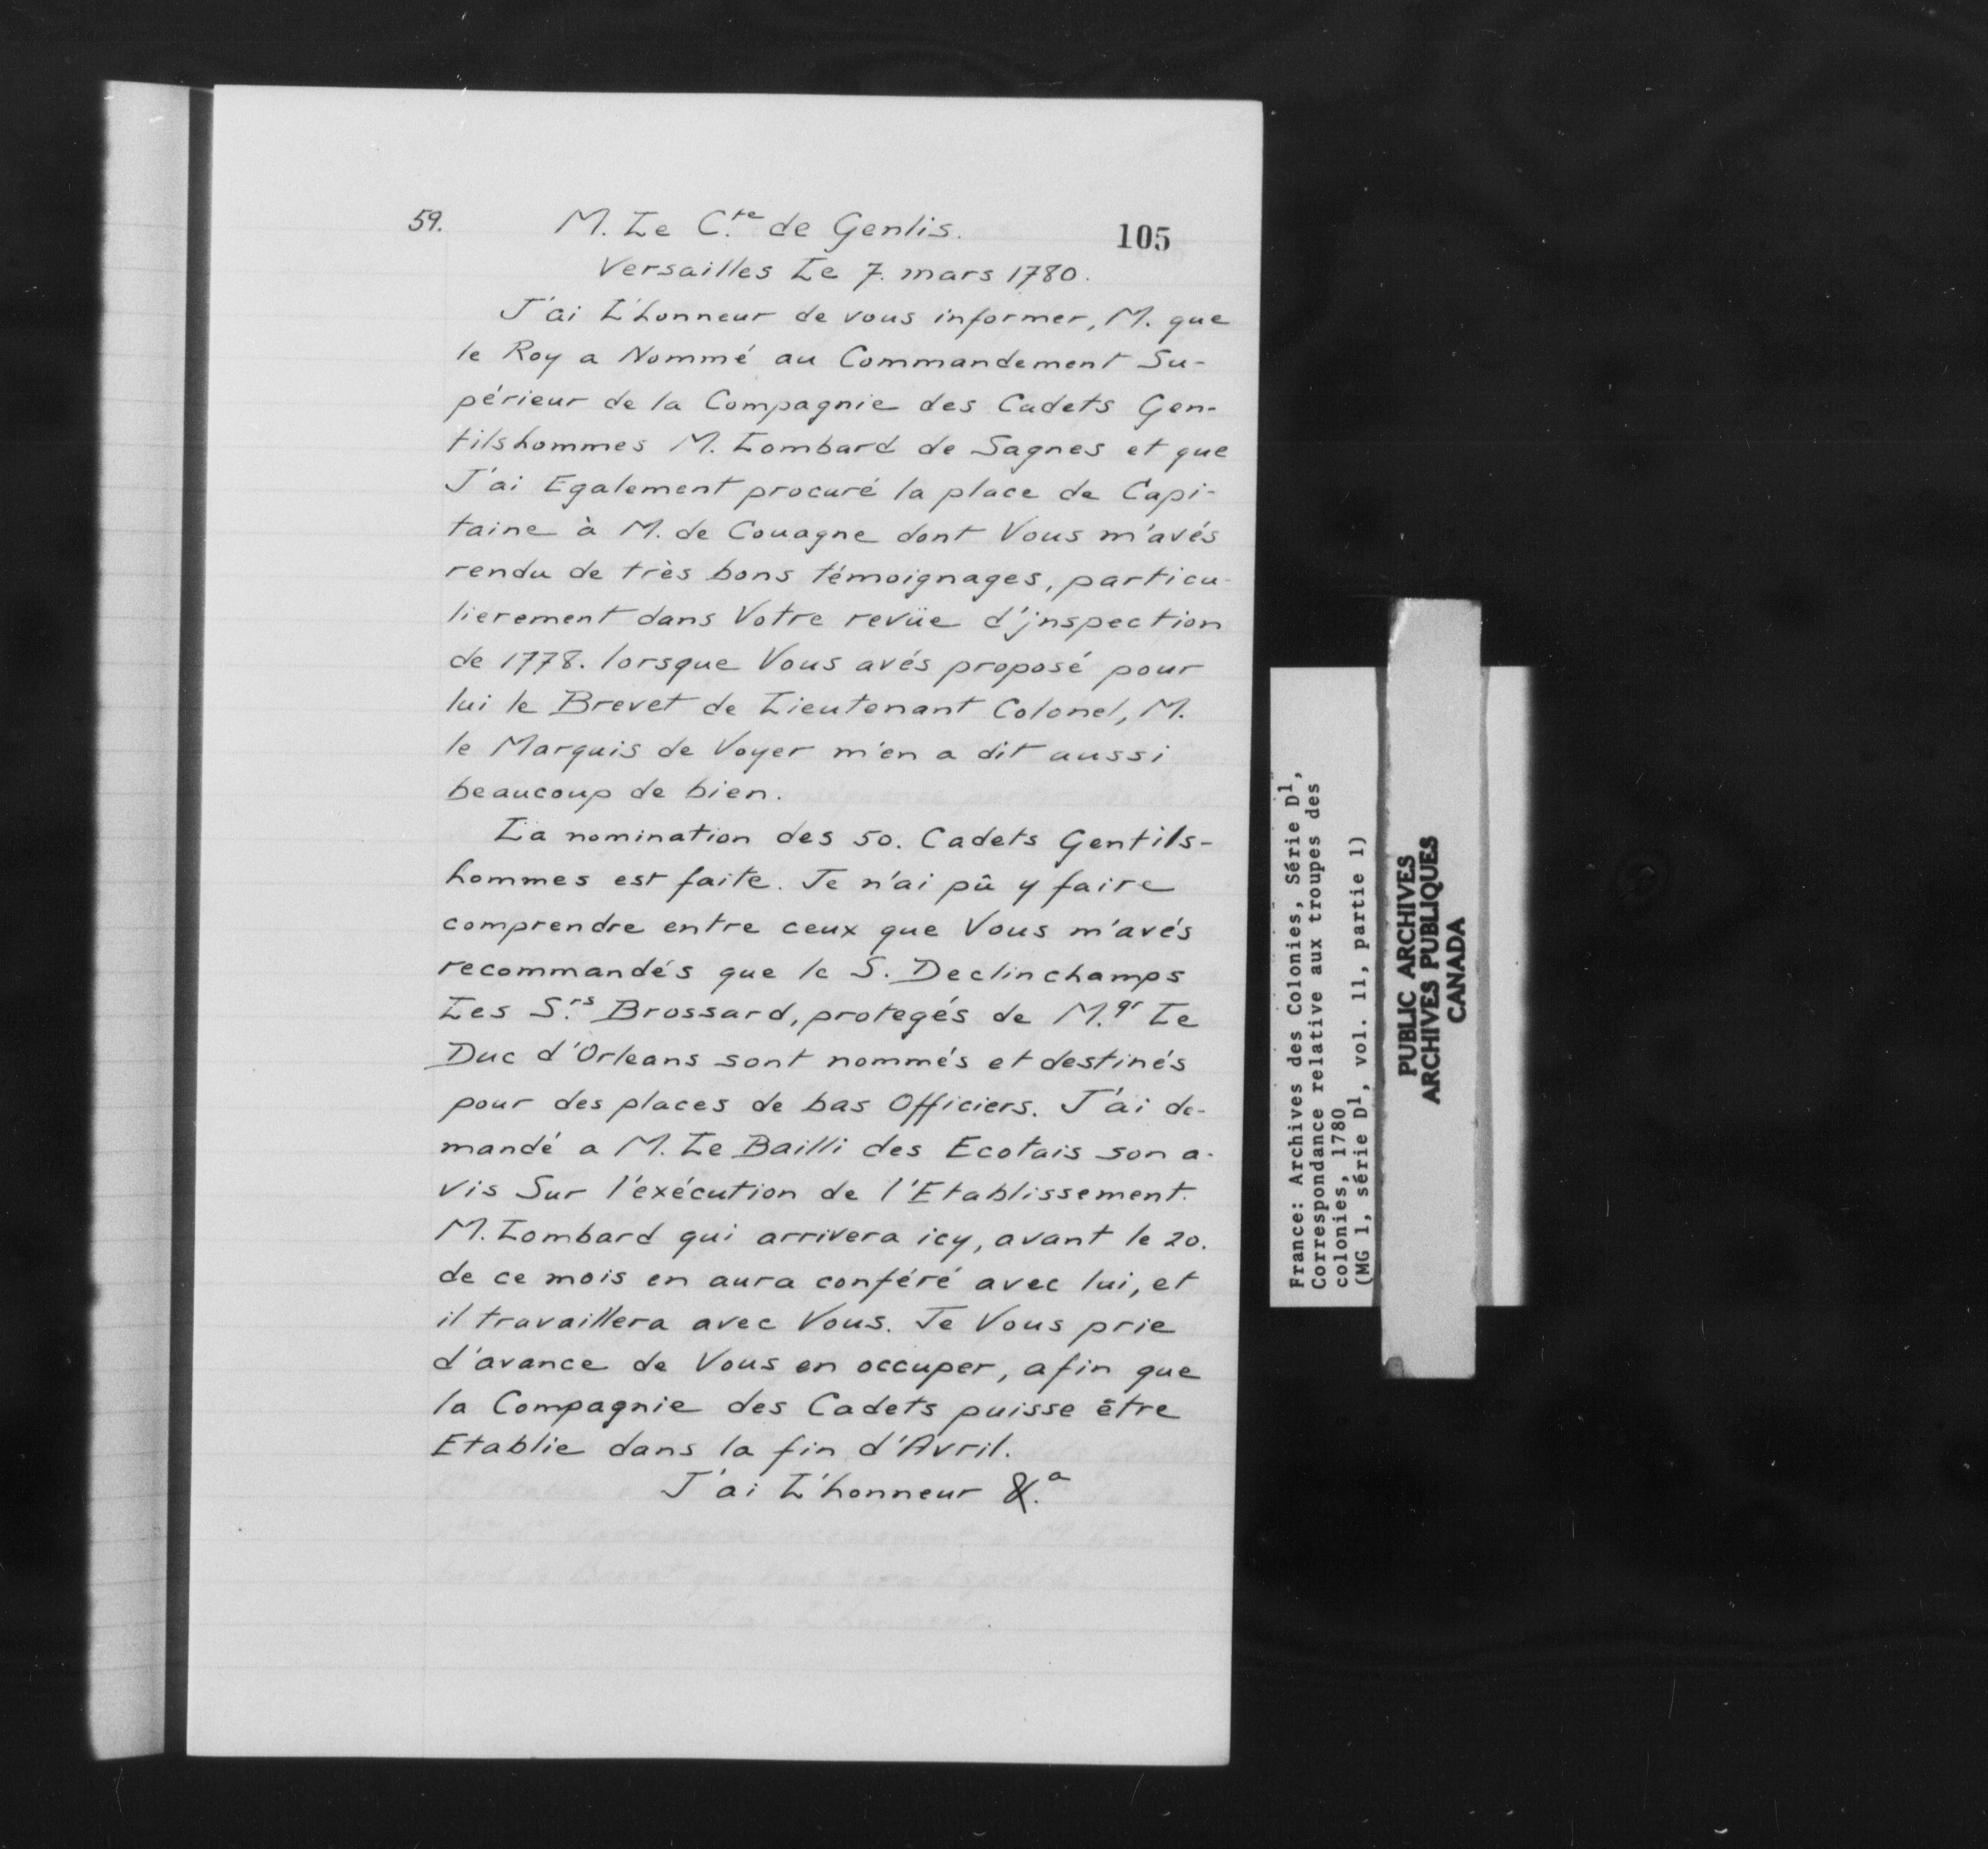 59.
M. Le C.te de Genlis.
105
Versailles Le 7. mars 1780.
J'ai L'honneur de vous informer, M. que
le Roy a Nommé au Commandement Su-
périeur de la Compagnie des Cadets Gen-
tilshommes M. Lombard de Sagnes et que
J'ai Egalement procuré la place de Capi-
taine à M. de Couagne dont Vous m'avés
rendu de très bons témoignages, particu-
lierement dans Votre revüe d'jnspection
de 1778. lorsque Vous avés proposé pour
lui le Brevet de Lieutenant Colonel, M.
le Marquis de Voyer m'en a dit aussi
beaucoup de bien.
La nomination des 50. Cadets Gentils-
hommes est faite. Je n'ai pû y faire
comprendre entre ceux que Vous m'avés
recommandés que le S. Declinchamps
Les S.rs Brossard, protegés de M.gr Le
Duc d'Orleans sont nommés et destinés
pour des places de bas Officiers. J'ai de-
mandé a M. Le Bailli des Ecotais son a-
vis Sur l'exécution de l'Etablissement.
M. Lombard qui arrivera icy, avant le 20.
de ce mois en aura conféré avec lui, et
il travaillera avec Vous. Je Vous prie
d'avance de Vous en occuper, afin que
la Compagnie des Cadets puisse être
Etablie dans la fin d'Avril.
J'ai L'honneur &.a
France: Archives des Colonies, Série D1,
Correspondance relative aux troupes des
colonies, 1780
(MG 1, série D1, vol. 11, partie 1)
PUBLIC ARCHIVES
ARCHIVES PUBLIQUES
CANADA